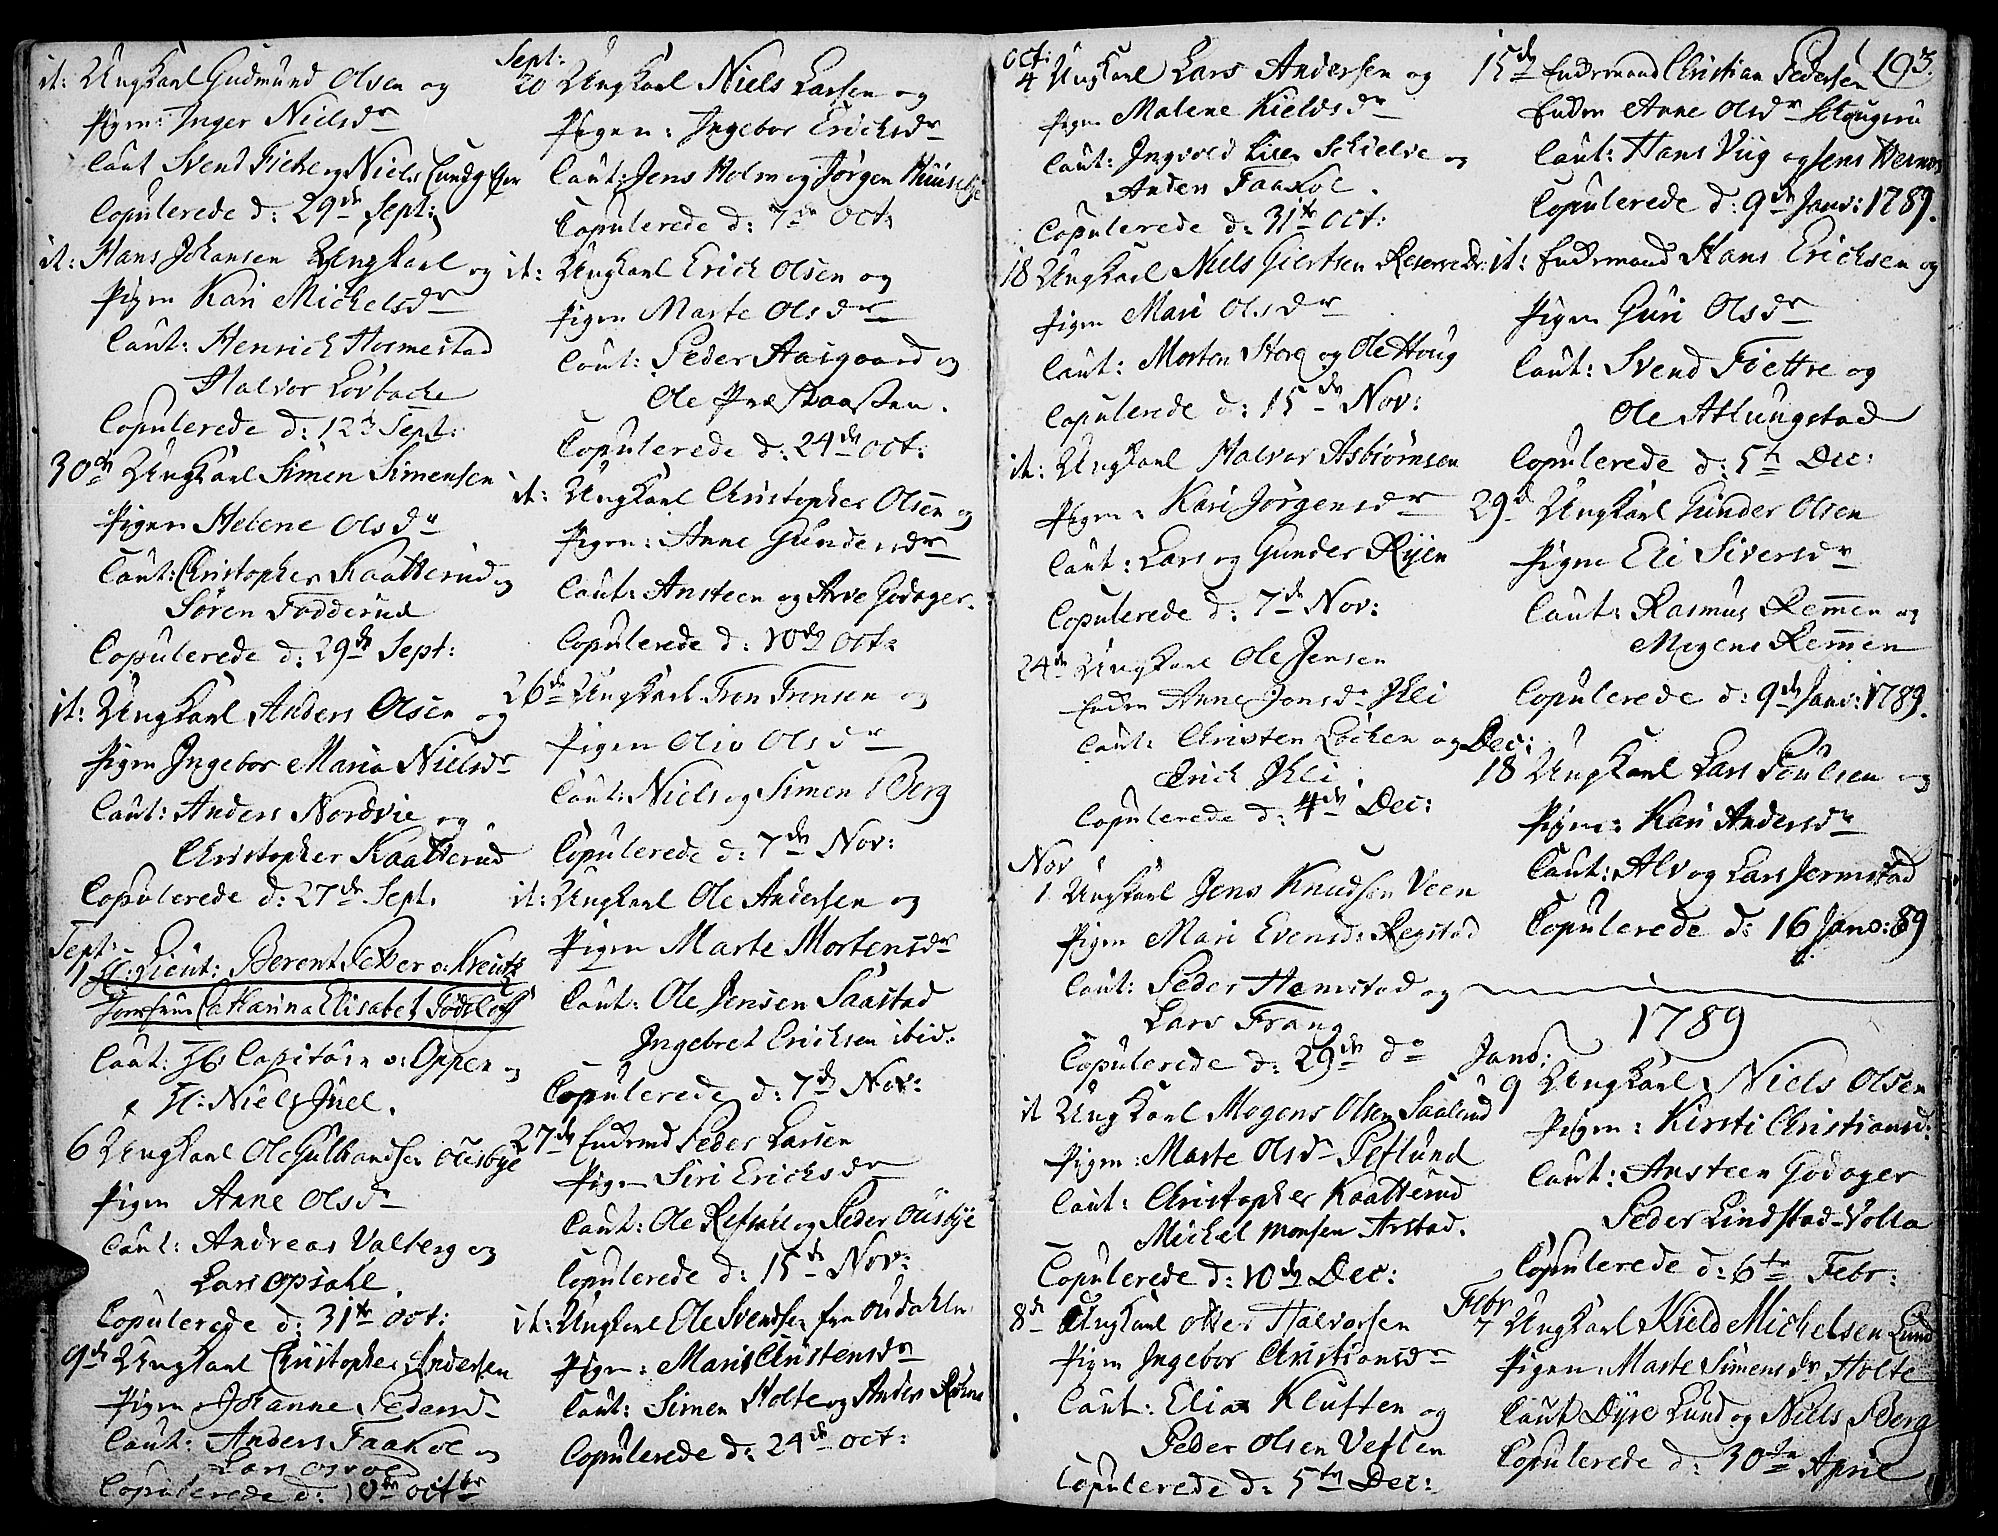 it: Ungkarl Gudmund Olsen og
Pigen: Inger Nielsdr
Caut Svend Fietre og Niels Lundg
Copulerede d: 29de Sept:
it: Hans Johansen Ungkarl og
Pigen Kari Michelsdr
Caut: Henrich Hormestad
Halvor Lovbacke
Copulerede d: 12 Sept:
30de Ungkarl Simen Simensen
Pigen Helene Olsdr
Caut: Christopher Kaatterud og
Søren Fodderud
Copulerede d: 29de Sept:
it: Ungkarl Anders Olsen og
Pigen Ingebor Maria Nielsdr
Caut: Anders Nordvie og
Christopher Kaatterud
Copulerede d: 27de Sept.
Sept:
1 H: Lieut: Berent Petter v: Kreutz
Jomfrue Catharina Elisabet Tødsløff
Caut: Hr Capitain v: Oppen og
H: Niels Juel.
6 Ungkarl Ole Gulbrandsen Ousbye
Pigen Anne Olsdr
Caut: Andreas Valberg og
Lars Opsahl.
Copulerede d: 31te Oct:
9de Ungkarl Christopher Andersen
Pigen Johanne Pedersdr
Caut: Anders Faakoe og
Lars
Copulerede d: 10de octbr
Sept:
20 Ungkarl Niels Larsen og
Pigen: Ingebor Erichsdr
Caut: Jens Holm og Jørgen Huusebye
Copulerede d: 7de Oct:
it: Ungkarl Erich Olsen og
Pigen Marte Olsdr
Caut: Peder Aasgaard og
Ole
Copulerede d: 24de Oct:
it: Ungkarl Christopher Olsen og
Pigen: Anne Gundersdr
Caut: Ansteen og Arve Godager.
Copulerede d: 10de Oct:
26de Ungkarl Tron Tronsen og
Pigen Oliv Olsdr
Caut: Niels og Simen Berg
Copulerede d: 7de Nov:
it: Ungkarl Ole Andersen og
Pigen Marte Mortensdr
Caut: Ole Jensen Saastad
Ingebret Erichsen ibid.
Copulerede d: 7de Nov:
27de Enkemd Peder Larsen
Pigen Siri Erichsdr
Caut: Ole Refsahl og Peder Ousbye
Copulerede d: 15de Nov:
it: Ungkarl Ole Svendsen fra Oudahlen
Pigen: Maris Christensdr
Caut: Simen Holte og Anders
Copulerede d: 24de Oct:
Oct:
4 Ungkarl Lars Andersen og
Pigen Malene Kieldsdr
Caut: Ingvold Schielve og
Anders Faakoe.
Copulerede d: 31te Oct:
18 Ungkarl Niels Giertsen
Pigen Mari Olsdr
Caut: Morten Houg og Ole Houg
Copulerede d: 15de Nov:
it: Ungkarl Halvor Asbiørnsen
Pigen: Kari Jørgensdr
Caut: Lars og Gunder Ryen
Copulerede d: 7de Nov:
24de Ungkarl Ole Jensen
Enken Anne Jonsdr Jhli
Caut: Christen Løchen og
Erich Jhli.
Copulerede d: 4de Dec:
Nov
1 Ungkarl Jens Knudsen Veen
Pigen Mari Evensdr Regstad
Caut: Peder Hamstad og
Lars Frang
Copulerede d: 29de do
it Ungkarl Mogens Olsen Saalund
Pigen: Marte Olsdr Peflund
Caut: Christopher Kaatterud
Michel Monsen Arstad.
Copulerede d: 10de Dec:
8de Ungkarl Halvorsen
Pigen Ingebor Christiansdr
Caut: Elias Kluften og
Peder Olsen Veflen
Copulerede d: 5te Dec:
193.
15de Enkemand Christian Pedersen
Enken Anne Olsdr
Caut: Hans Viig og Jens
Copulerede d: 9de Janv: 1789.
it: Enkemand Hans Erichsen og
Pigen Guri Olsdr
Caut: Svend Fiettre og
Ole Atlungstad
Copulerede d: 5te Dec:
29d Ungkarl Gunder Olsen
Pigen Eli Siversdr
Caut: Rasmus Remmen og
Mogens Remmen
Copulerede d: 9de Janv: 1789.
Dec:
18 Ungkarl Lars Poulsen og
Pigen: Kari Andersdr
Caut: Alv og Lars Jermstad
Copulerede d: 16 Janv: 89
1789
Janv:
9 Ungkarl Niels Olsen
Pigen: Kirsti Christiansd:
Caut: Ansteen Godager
Peder Lindstad-Volla
Copulerede d: 6te Febr:
Febr
7 Ungkarl Kield Michelsen Lund
Pigen Marte Simensdr Holte
Caut Dyre Lund og Niels Berg
Copulerede d: 30te April